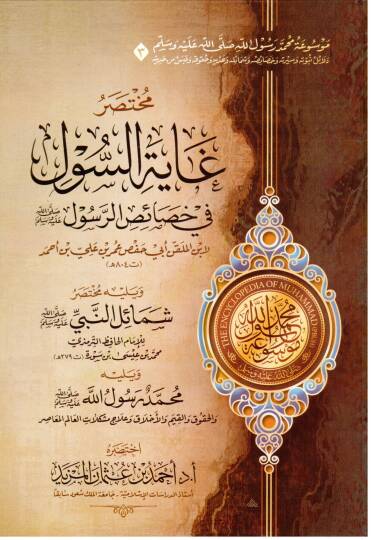 مَوْسُوعَةُ مُحَمَّد رَسُولِ اللَّه صَلَّى اللَّهُ عَلَيْهِ وَسَلَّم
٣
مُخْتَصَرُ
غَايَةِ السُّولِ
فِي خَصَائِصِ الرَّسُولِ صلى الله عليه وسلم
لابن الملقن أبي حفص عمر بن علي بن أحمد
(ت ٨٠٤هـ)
وَيَلِيهِ مُخْتَصَرُ
شَمَائِلِ النَّبِيِّ صلى الله عليه وسلم
للإمام الحافظ الترمذي
محمد بن عيسى بن سورة (ت ٢٧٩هـ)
وَيَلِيهِ
مُحَمَّدٌ رَسُولُ اللَّه صلى الله عليه وسلم
والحقوق والقيم والأخلاق وعلاج مشكلات العالم المعاصر
اخْتَصَرَهُ
أ.د أحمد بن عثمان المزيد
أستاذ الدراسات الإسلامية - جامعة الملك سعود سابقًا
THE ENCYCLOPEDIA OF MUHAMMAD
موسوعة محمد رسول الله
صلى الله عليه وسلم